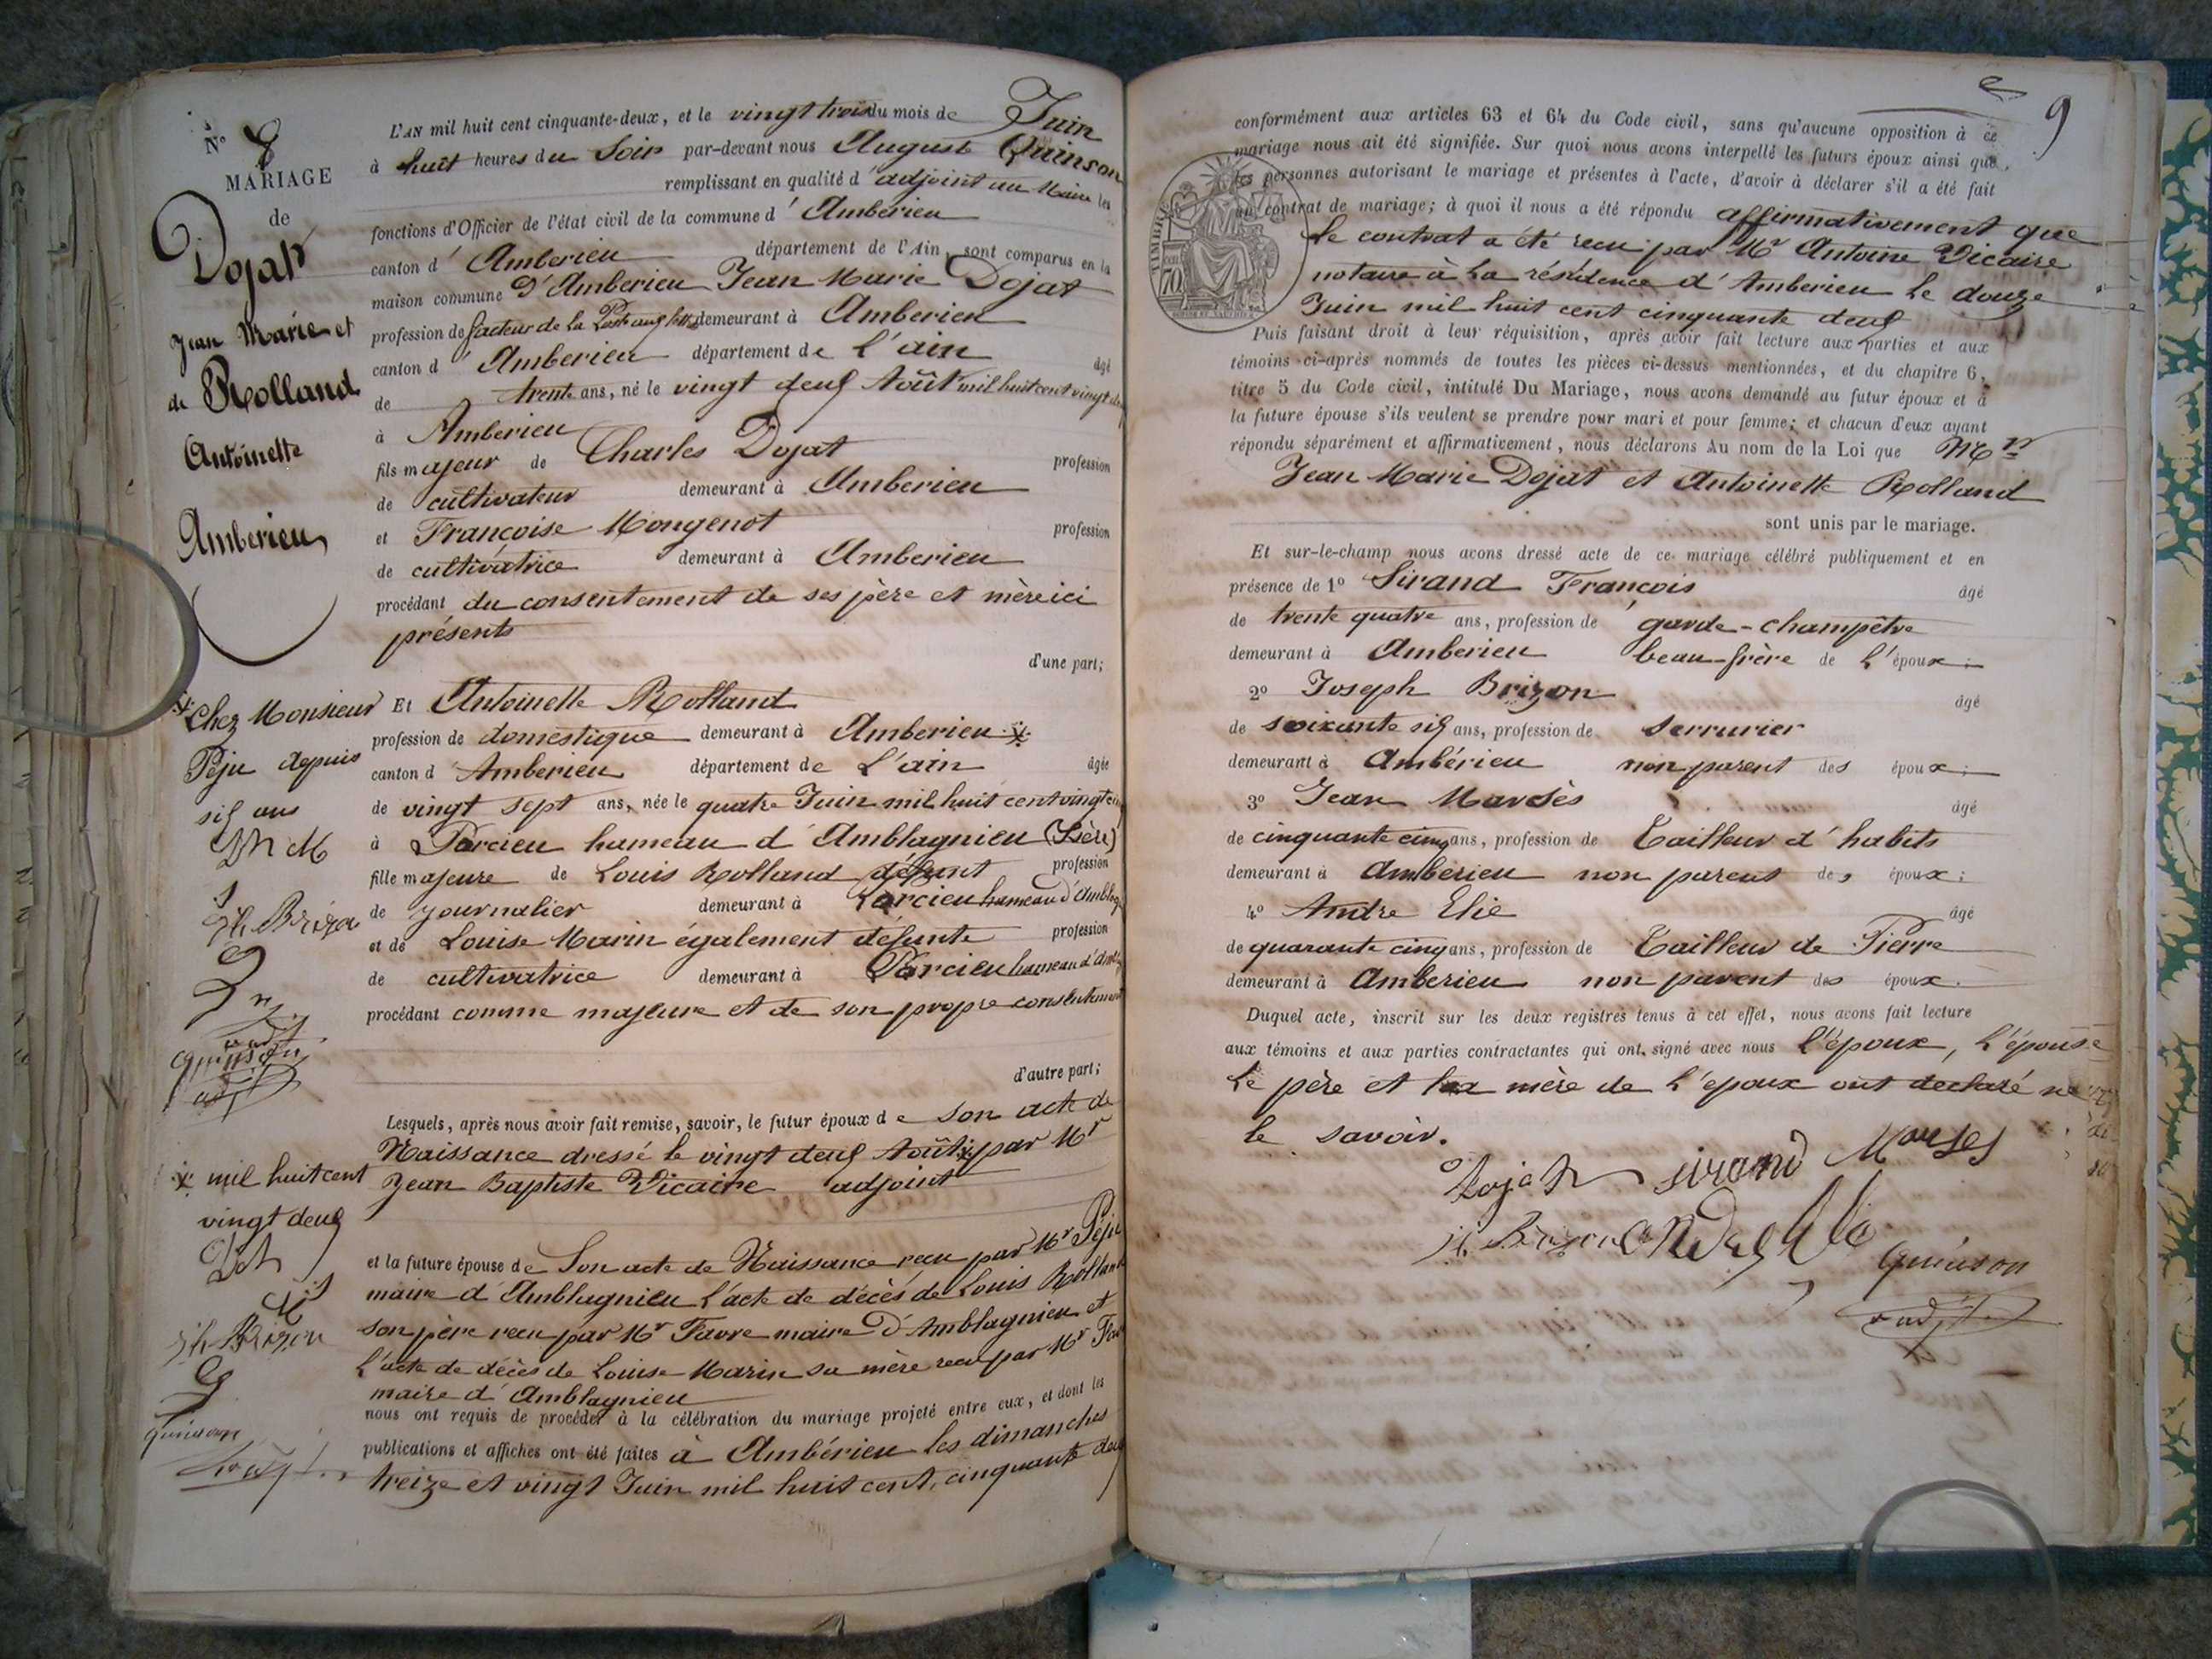 N° 8
MARIAGE
de
Dojat
Jean Marie et
de Rolland
Antoinette
Amberieu
L'AN mil huit cent cinquante-deux, et le vingt trois du mois de Juin
à huit heures du Soir par-devant nous August Quinson
remplissant en qualité d'adjoint au Maire les
fonctions d'Officier de l'état civil de la commune d'Amberieu
canton d'Amberieu département de l'Ain, sont comparus en la
maison commune D'Amberieu Jean Marie Dojat
profession de facteur de la Poste aux demeurant à Amberieu
canton d'Amberieu département de L'ain âgé
de trente ans, né le vingt deux Août mil huit cent vingt
à Amberieu
fils majeur de Charles Dojat profession
de cultivateur demeurant à Amberieu
et Françoise Mongenot profession
de cultivatrice demeurant à Amberieu
procédant du consentement de ses père et mère ici
présents
d'une part;
Et Antoinette Rolland
profession de domestique demeurant à Amberieu
canton d'Amberieu département de L'ain âgée
de vingt sept ans, née le quatre Juin mil huit cent vingt
à Parcieu hameau d'Amblagnieu (Isère)
fille majeure de Louis Rolland défunt profession
de journalier demeurant à Parcieu hameau d'
et de Louise Marin également défunte profession
de cultivatrice demeurant à Parcieu hameau
procédant comme majeure et de son propre consentement
d'autre part;
Lesquels, après nous avoir fait remise, savoir, le futur époux de Son acte de
Naissance dressé le vingt deux Août par Mr
Jean Baptiste Vicaire adjoint
et la future épouse de Son acte de Naissance recu par Mr Péju
maire d'Amblagnieu L'acte de décès de Louis Rolland
son père recu par Mr Favre maire D'Amblagnieu et
L'acte de décès de Louise Marin sa mère recu par Mr
maire d'Amblagnieu
nous ont requis de procéder à la célébration du mariage projeté entre eux, et dont les
publications et affiches ont été faites à Ambérieu les dimanches
treize et vingt Juin mil huit cent cinquante deux
Chez Monsieur
Péju depuis
six ans
Quinson
mil huit cent
vingt deux
Jh Brizon
Quinson
9
conformément aux articles 63 et 64 du Code civil, sans qu'aucune opposition à ce
mariage nous ait été signifiée. Sur quoi nous avons interpellé les futurs époux ainsi que
les personnes autorisant le mariage et présentes à l'acte, d'avoir à déclarer s'il a été fait
un contrat de mariage; à quoi il nous a été répondu affirmativement que
le contrat a été recu par Mr Antoine Vicaire
notaire à la résidence d'Amberieu le douze
Juin mil huit cent cinquante deux
TIMBRE
70
Puis faisant droit à leur réquisition, après avoir fait lecture aux parties et aux
témoins ci-après nommés de toutes les pièces ci-dessus mentionnées, et du chapitre 6,
titre 5 du Code civil, intitulé Du Mariage, nous avons demandé au futur époux et à
la future épouse s'ils veulent se prendre pour mari et pour femme; et chacun d'eux ayant
répondu séparément et affirmativement, nous déclarons Au nom de la Loi que
Jean Marie Dojat et Antoinette Rolland
sont unis par le mariage.
Et sur-le-champ nous avons dressé acte de ce mariage célébré publiquement et en
présence de 1° Sirand François âgé
de trente quatre ans, profession de garde-champêtre
demeurant à Amberieu beau-frère de L'époux;
2° Joseph Brizon âgé
de soixante six ans, profession de serrurier
demeurant à Ambérieu non parent des époux;
3° Jean Marsès âgé
de cinquante cinq ans, profession de Tailleur d'habits
demeurant à Amberieu non parent des époux;
4° Andre Elie âgé
de quarante cinq ans, profession de Tailleur de Pierre
demeurant à Amberieu non parent des époux.
Duquel acte, inscrit sur les deux registres tenus à cet effet, nous avons fait lecture
aux témoins et aux parties contractantes qui ont signé avec nous L'époux, L'épouse
Le père et la mère de L'epoux ont declaré ne
le savoir.
Dojat sirand Marses
Jh Brizon andre Elie
Quinson